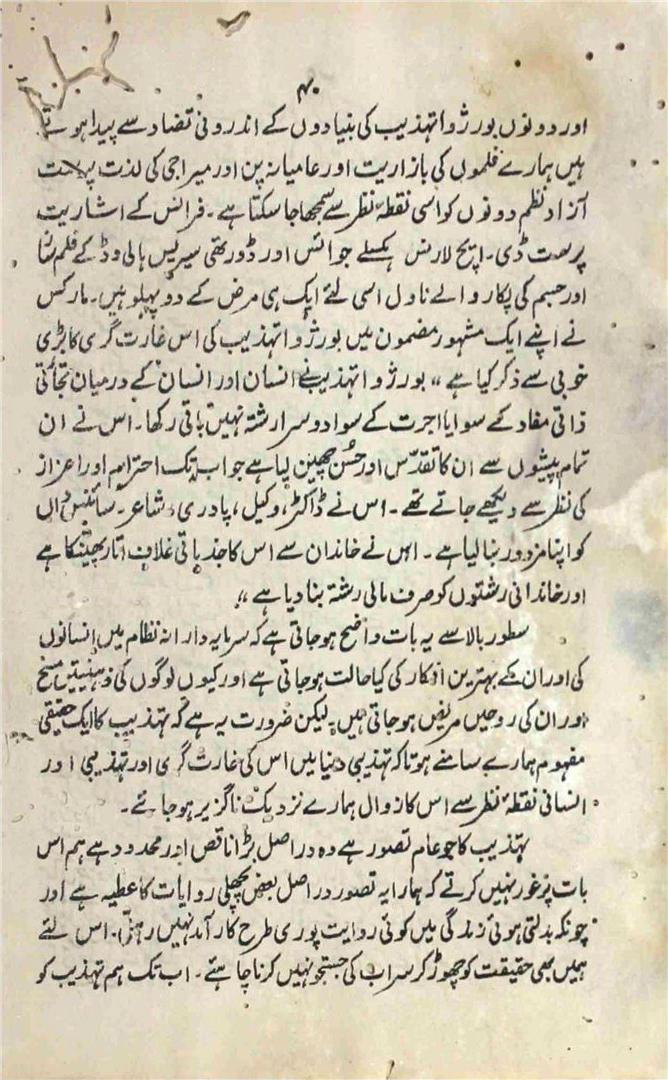 ۴۰
اور دونوں بورژوا تہذیب کی بنیادوں کے اندرونی تضاد سے پیدا ہوتے
ہیں ہمارے فلموں کی بازاریت اور عامیانہ پن اور میراجی کی لذت پرست
آزاد نظم دونوں کو اسی نقطۂ نظر سے سمجھا جا سکتا ہے۔ فرانس کے اشاریت
پرست ڈی۔ ایچ لارنس ہکسلے جوائس اور ڈورتھی سیرس ہالی وڈ کے فلم
اور جسم کی پکار والے ناول اسی لئے ایک ہی مرض کے دو پہلو ہیں۔ مارکس
نے اپنے ایک مشہور مضمون میں بورژوا تہذیب کی اس غارت گری کا بڑی
خوبی سے ذکر کیا ہے ،، بورژوا تہذیب نے انسان اور انسان کے درمیان
ذاتی مفاد کے سوا یا اجرت کے سوا دوسرا رشتہ نہیں باقی رکھا۔ اس نے ان
تمام پیشوں سے ان کا تقدّس اور حُسن چھین لیا ہے جو اب تک احترام اور اعزاز
کی نظر سے دیکھے جاتے تھے۔ اس نے ڈاکٹر، وکیل، پادری، شاعر۔ سائنس داں
کو اپنا مزدور بنا لیا ہے۔ اس نے خاندان سے اس کا جذباتی غلاف اتار پھینکا ہے
اور خاندانی رشتوں کو صرف مالی رشتہ بنا دیا ہے ،،
سطور بالا سے یہ بات واضح ہو جاتی ہے کہ سرمایہ دارانہ نظام میں انسانوں
کی اور ان کے بہترین افکار کی کیا حالت ہو جاتی ہے اور کیوں لوگوں کی ذہنیتیں مسخ
اور ان کی روحیں مریض ہو جاتی ہیں۔ لیکن ضرورت یہ ہے کہ تہذیب کا ایک حقیقی
مفہوم ہمارے سامنے ہو تاکہ تہذیبی دنیا میں اس کی غارت گری اور تہذیبی اور
انسانی نقطۂ نظر سے اس کا زوال ہمارے نزدیک ناگزیر ہو جائے۔
تہذیب کا جو عام تصور ہے وہ دراصل بڑا ناقص اور محدود ہے ہم اس
بات پر غور نہیں کرتے کہ ہمارا یہ تصور دراصل بعض پچھلی روایات کا عطیہ ہے اور
چونکہ بدلتی ہوئی زندگی میں کوئی روایت پوری طرح کار آمد نہیں رہتی۔ اس لئے
ہمیں بھی حقیقت کو چھوڑ کر سراب کی جستجو نہیں کرنا چاہئے۔ اب تک ہم تہذیب کو